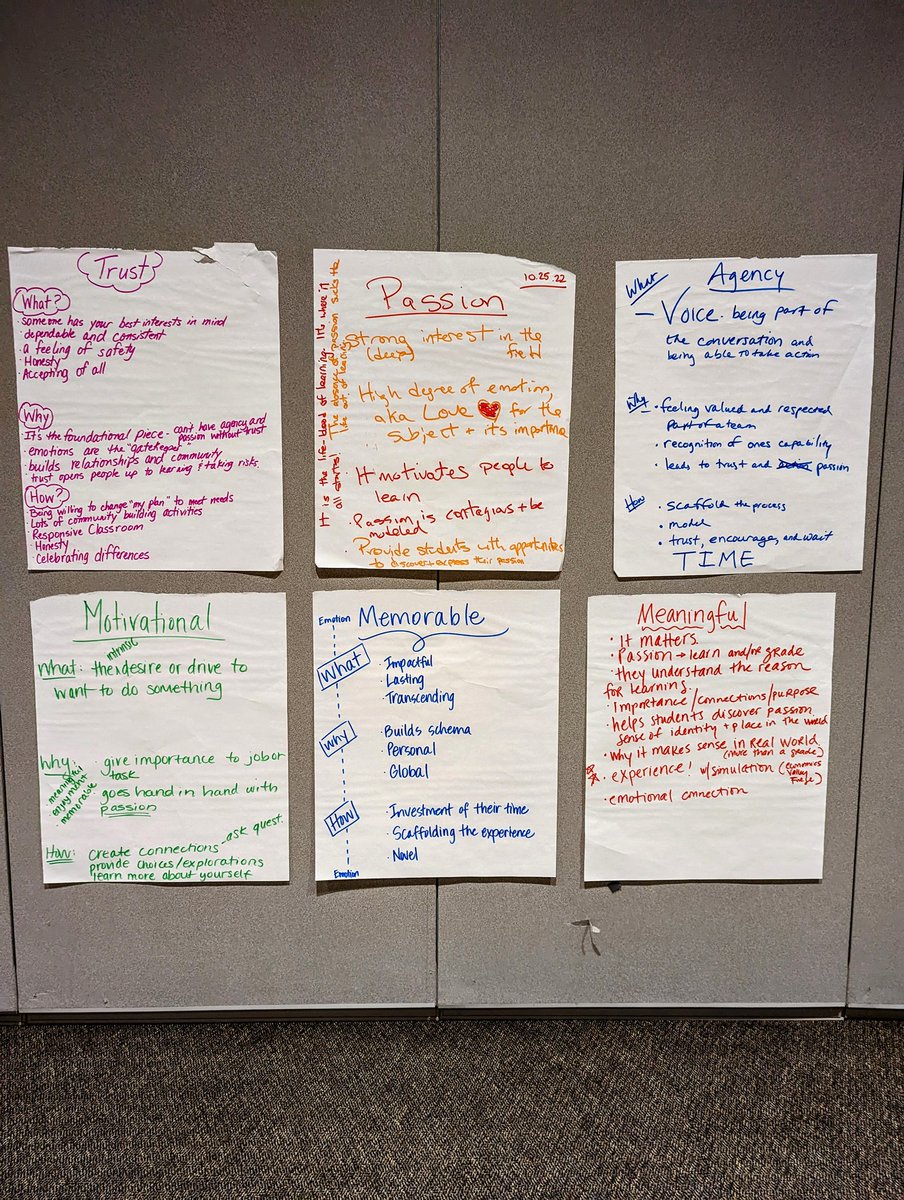 Trust
What?
· Someone has your best interests in mind
dependable and consistent
· a feeling of safety
· Honesty
· Accepting of all
Why
It's the foundational piece - can't have agency and
passion without trust
· emotions are the "gatekeeper"
· builds relationships and community
trust opens people up to learning & taking risks.
How?
Being willing to change "my plan" to meet needs
· Lots of community building activities
Responsive Classroom
· Honesty
· Celebrating differences
10.25.22
Passion
Strong interest in the
(deep) field
High degree of emotion
aka Love ❤ for the
subject + it's importance
It motivates people to
learn
· Passion is contagious + be
modeled
· Provide students with opportunities
to discover + express their passion
It is the life-blood of learning. It's where it
all starts! The absence of passion sucks the
life out of learning
Agency
What
- Voice. being part of
the conversation and
being able to take action
Why
· feeling valued and respected
part of a team
· recognition of ones capability
· leads to trust and passion
How
· scaffold the process
· model
· trust, encourage, and wait
TIME
Motivational
intrinsic
What: the desire or drive to
want to do something
Why: give importance to job or
task
· meaningful
· enjoyment
· memorable
goes hand in hand with
passion
How: Create connections - ask quest.
provide choices/explorations
learn more about yourself
Emotion
Memorable
What
· Impactful
· Lasting
· Transcending
Why
· Builds schema
· Personal
· Global
How
· Investment of their time
· Scaffolding the experience
· Novel
Emotion
Meaningful
· It matters.
· Passion → learn and/or grade
· they understand the reason
for learning.
· Importance/connections/purpose
· helps students discover passion
sense of identity + place in the world
· Why it makes sense in Real World
(more than a grade)
· experience! w/simulation (economics
Valley
Forge)
· emotional connection